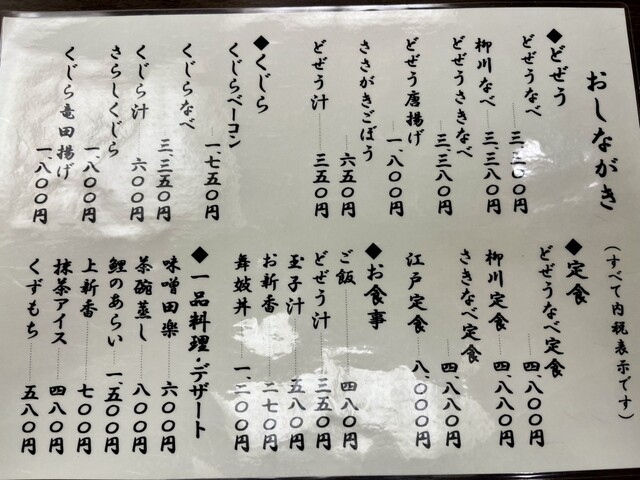 おしながき
(すべて内税表示です)
◆どぜう
どぜうなべ 三、二〇〇円
柳川なべ 三、三八〇円
どぜうさきなべ 三、三八〇円
どぜう唐揚げ 一、八〇〇円
ささがきごぼう 六五〇円
どぜう汁 三五〇円
◆くじら
くじらベーコン 一、七五〇円
くじらなべ 三、三五〇円
くじら汁 六〇〇円
さらしくじら 一、八〇〇円
くじら竜田揚げ 一、八〇〇円
◆定食
どぜうなべ定食 四、八〇〇円
柳川定食 四、八八〇円
さきなべ定食 四、八八〇円
江戸定食 八、〇〇〇円
◆お食事
ご飯 四八〇円
どぜう汁 三五〇円
玉子汁 五八〇円
お新香 二七〇円
舞妓丼 一、二〇〇円
◆一品料理・デザート
味噌田楽 六〇〇円
茶碗蒸し 八〇〇円
鯉のあらい 一、五〇〇円
上新香 七〇〇円
抹茶アイス 四八〇円
くずもち 五八〇円